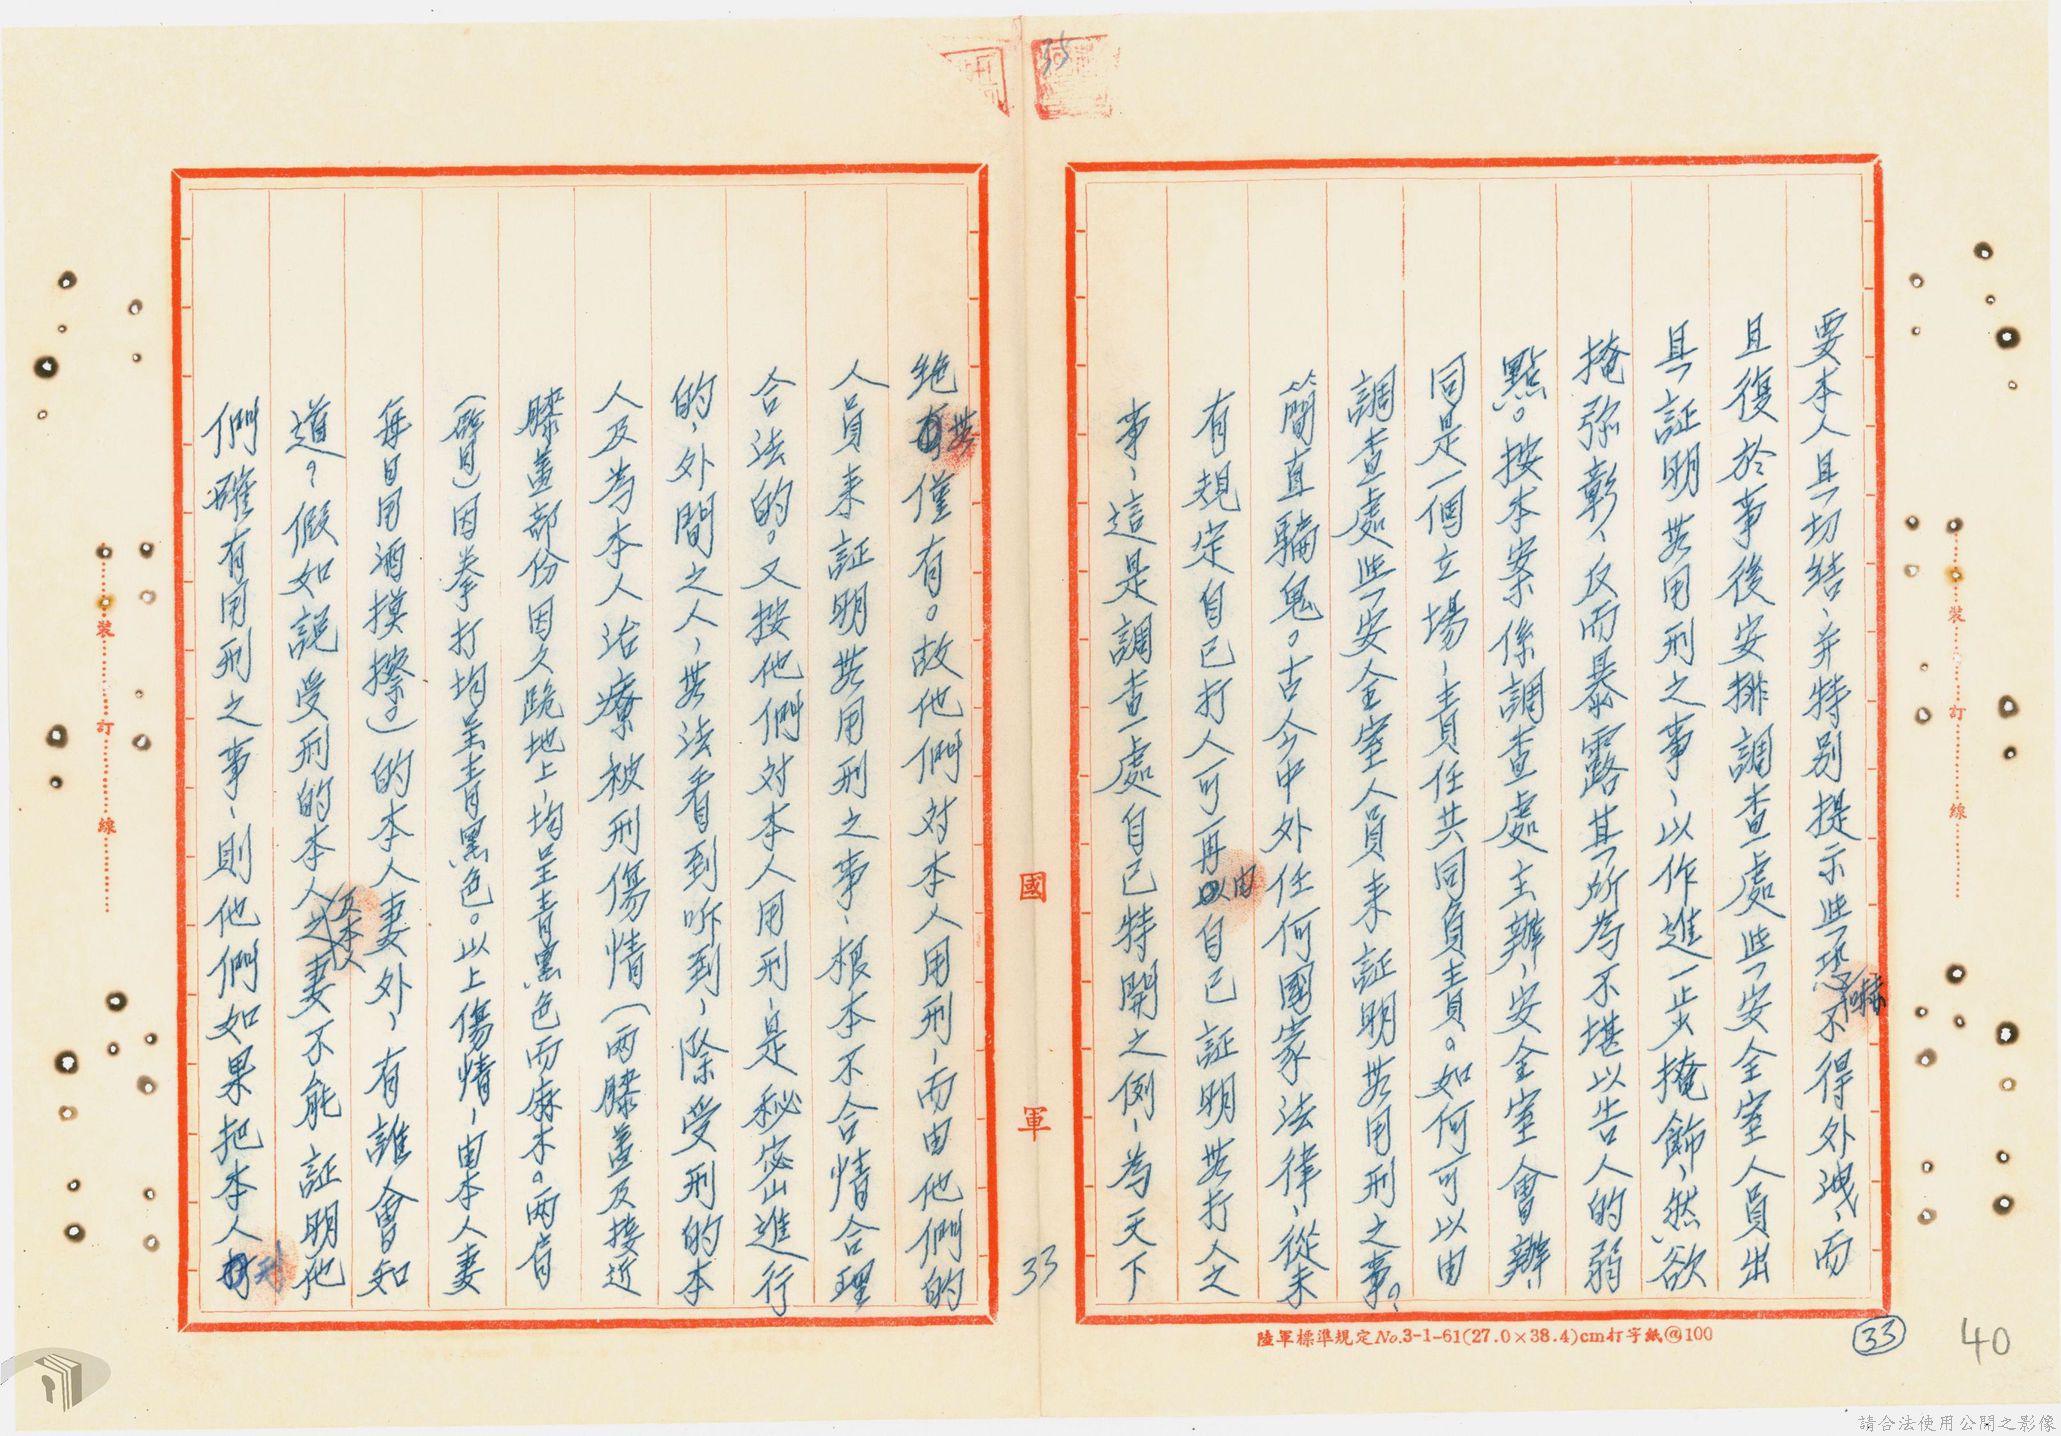 要本人具切結、并特別提示些恐嚇不得外洩、而
且復於事後安排調查處些安全室人員出
具証明無用刑之事、以作進一步掩飾、然欲
掩弥彰、反而暴露其所為不堪以告人的弱
點。按本案係調查處主辦、安全室會辦、
同是一個立場、責任共同負責。如何可以由
調查處些安全室人員來証明無用刑之事？
簡直騙鬼。古今中外任何國家法律、從未
有規定自己打人可再由自己証明無打人之
事、這是調查處自己特開之例、為天下
絶無僅有。故他們對本人用刑、而由他們的
人員來証明無用刑之事、根本不合情合理
合法的。又按他們對本人用刑、是秘密進行
的、外間之人、無法看到听到、除受刑的本
人及為本人治療被刑傷情（兩膝蓋及接近
膝蓋部份因久跪地上、均呈青黑色而麻木。兩肩
（臂）因拳打均呈青黑色。以上傷情、由本人妻
每日用酒摸擦。）的本人妻外、有誰會知
道？假如說受刑的本人及本人妻不能証明他
們確有用刑之事、則他們如果把本人刑
國軍
33
35
陸軍標準規定No.3-1-61(27.0×38.4)cm打字紙@100
33
40
裝訂線
裝訂線
請合法使用公開之影像